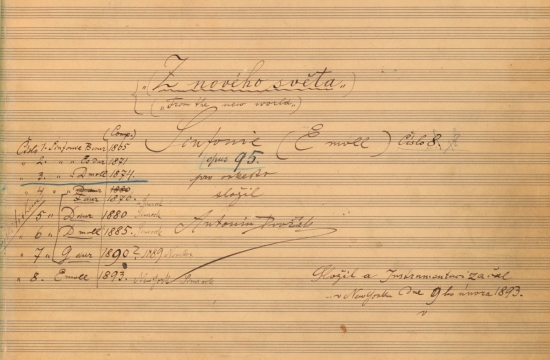 „Z nového světa„
(„From the new world„)
Sinfonie (E moll) Číslo 8.
opus 95.
pro orkestr
složil
Antonín Dvořák
(Comp.)
Číslo 1. Sinfonie B dur 1865
„ 2. „ Es dur 1871
„ 3. „ D moll 1874
„ 4 „
F dur
„ 5 „ D dur 1880
„ 6 „ D moll 1885.
„ 7 „ G dur 1890?
„ 8. E moll 1893. New York
Složil a Instrumentovi začal
v New Yorku Dne 9ho února 1893.